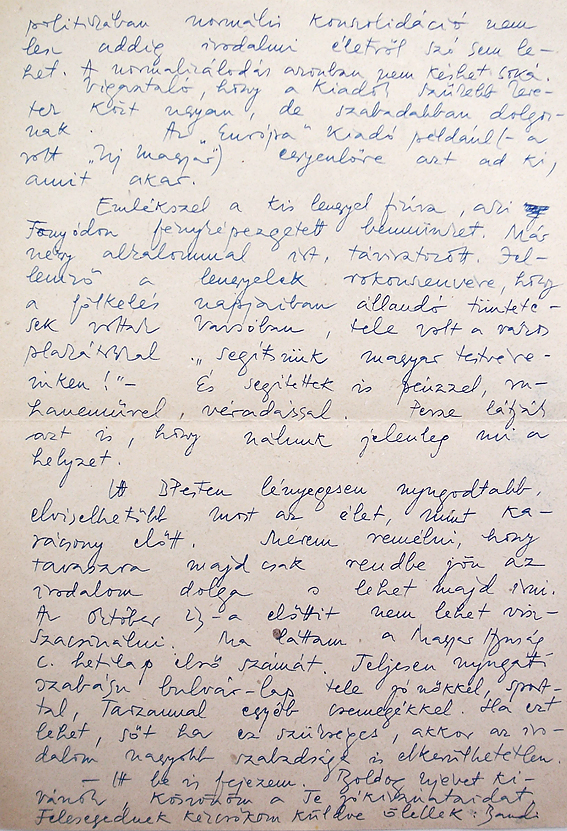 politikában normális konszolidáció nem
lesz addig irodalmi életről szó sem le-
het. A normalizálódás azonban nem késhet soká.
Vigasztaló, hogy a Kiadók szűkebb kere-
tek közt ugyan, de szabadabban dolgoz-
nak. Az "Európa" Kiadó például (- a
volt "Uj Magyar"). egyenlőre azt ad ki,
amit akar.
Emlékszel a kis lengyel fiúra, aki
Fonyódon fényképezgetett bennünket. Már
négy alkalommal irt, táviratozott. Jel-
lemző a lengyelek rokonszenvére, hogy
a fölkelés napjaiban állandó tünteté-
sek voltak Varsóban, tele volt a város
plakátokkal "segítsünk magyar testvére-
inken!"- És segítettek is pénzzel, ru-
haneművel, véradással. Persze látják
azt is, hogy nálunk jelenleg mi a
helyzet.
Itt BPesten lényegesen nyugodtabb,
elviselhetőbb most az élet, mint ka-
rácsony előtt. Merem remélni, hogy
tavaszra majd csak rendbe jön az
irodalom dolga s lehet majd irni.
Az október 23-a előttit nem lehet visz-
szacsinálni. Ma láttam a Magyar Ifjuság
c. hetilap első számát. Teljesen nyugati
szabásu bulvár-lap tele jó nőkkel, sport-
tal, Tarzannal egyéb csemegékkel. Ha ezt
lehet, sőt ha ez szükséges, akkor az iro-
dalom nagyobb szabadsága is elkerülhetetlen.
- Itt be is fejezem. Boldog ujévet ki-
vánok, köszönöm a Te jókivánataidat,
Feleségednek kézcsókom küldve ölellek: Bandi